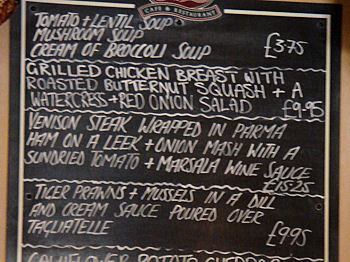 CAFE & RESTAURANT
TOMATO + LENTIL SOUP
MUSHROOM SOUP
CREAM OF BROCCOLI SOUP £3.75
GRILLED CHICKEN BREAST WITH
ROASTED BUTTERNUT SQUASH + A
WATERCRESS + RED ONION SALAD £9.95
VENISON STEAK WRAPPED IN PARMA
HAM ON A LEEK + ONION MASH WITH A
SUNDRIED TOMATO + MARSALA WINE SAUCE
£15.25
TIGER PRAWNS + MUSSELS IN A DILL
AND CREAM SAUCE POURED OVER
TAGLIATELLE £9.95
CAULIFLOWER POTATO CHEDDAR